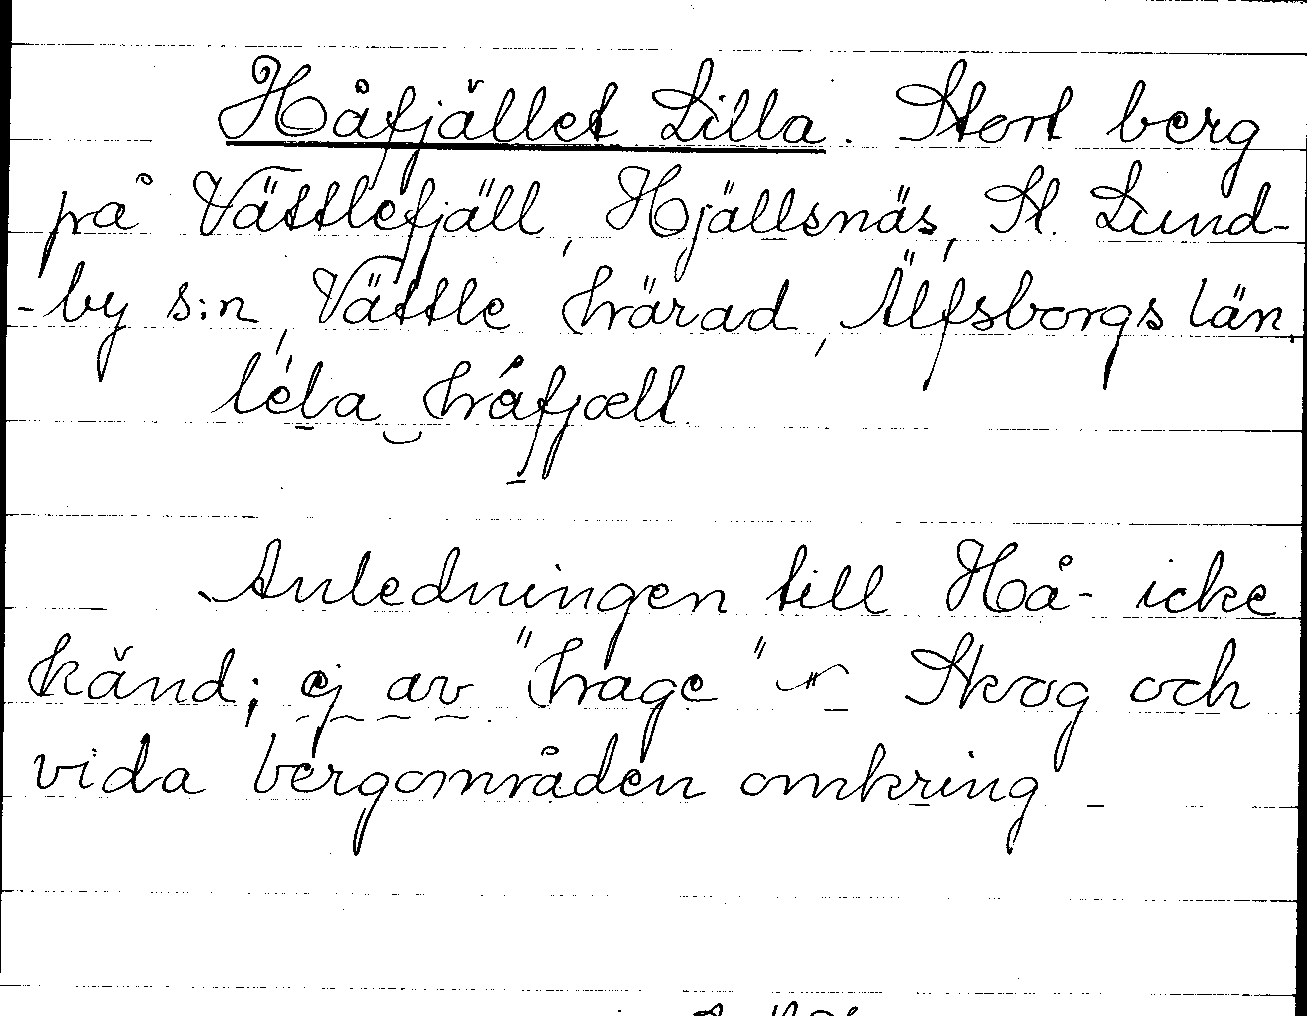 Håfjället Lilla. Stort berg
på Vättlefjäll, Hjällsnäs, St. Lund-
-by s:n, Vättle härad, Älfsborgs län.
Anledningen till Hå- icke
känd; ej av "hage" Skog och
vida bergområden omkring